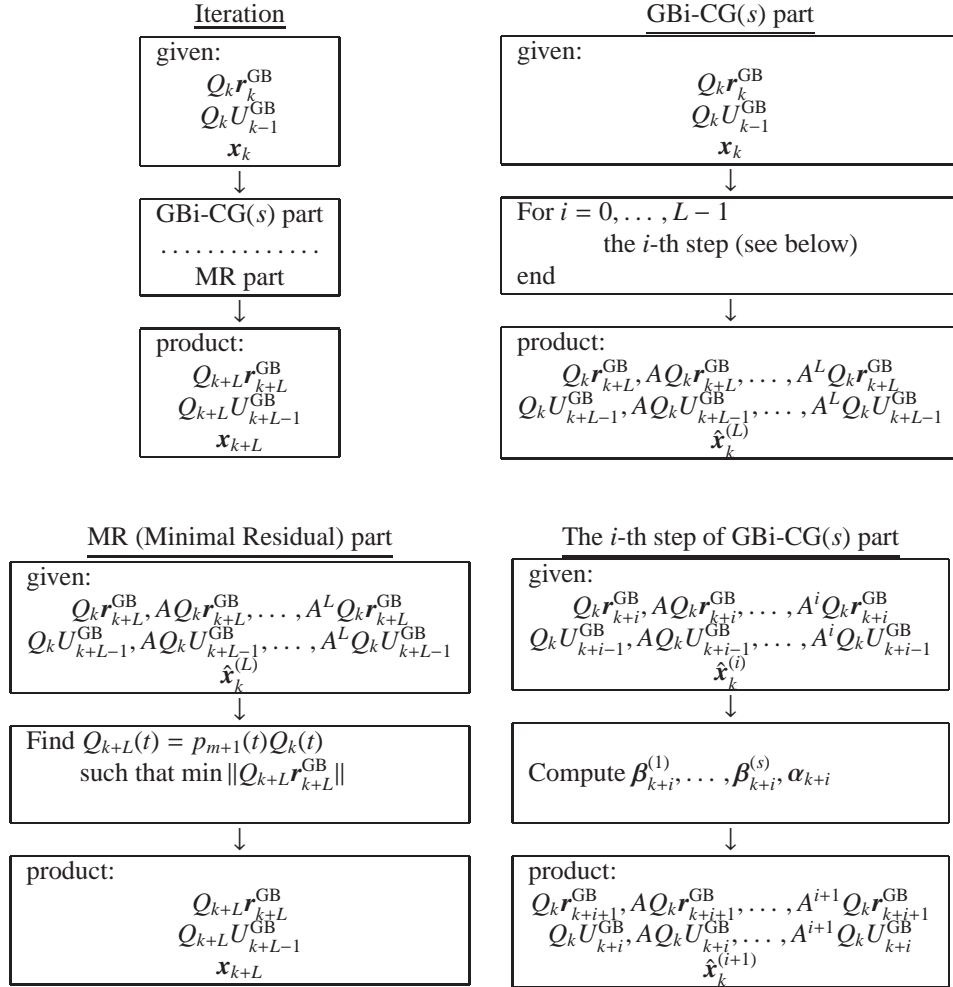 Iteration
given:
Q_k r_k^GB
Q_k U_{k−1}^GB
x_k
↓
GBi-CG(s) part
. . . . . . . . . . . . . .
MR part
↓
product:
Q_{k+L} r_{k+L}^GB
Q_{k+L} U_{k+L−1}^GB
x_{k+L}
GBi-CG(s) part
given:
Q_k r_k^GB
Q_k U_{k−1}^GB
x_k
↓
For i = 0, . . . , L − 1
the i-th step (see below)
end
↓
product:
Q_k r_{k+L}^GB, AQ_k r_{k+L}^GB, . . . , A^L Q_k r_{k+L}^GB
Q_k U_{k+L−1}^GB, AQ_k U_{k+L−1}^GB, . . . , A^L Q_k U_{k+L−1}^GB
x̂_k^(L)
MR (Minimal Residual) part
given:
Q_k r_{k+L}^GB, AQ_k r_{k+L}^GB, . . . , A^L Q_k r_{k+L}^GB
Q_k U_{k+L−1}^GB, AQ_k U_{k+L−1}^GB, . . . , A^L Q_k U_{k+L−1}^GB
x̂_k^(L)
↓
Find Q_{k+L}(t) = p_{m+1}(t)Q_k(t)
such that min ||Q_{k+L} r_{k+L}^GB||
↓
product:
Q_{k+L} r_{k+L}^GB
Q_{k+L} U_{k+L−1}^GB
x_{k+L}
The i-th step of GBi-CG(s) part
given:
Q_k r_{k+i}^GB, AQ_k r_{k+i}^GB, . . . , A^i Q_k r_{k+i}^GB
Q_k U_{k+i−1}^GB, AQ_k U_{k+i−1}^GB, . . . , A^i Q_k U_{k+i−1}^GB
x̂_k^(i)
↓
Compute β_{k+i}^(1), . . . , β_{k+i}^(s), α_{k+i}
↓
product:
Q_k r_{k+i+1}^GB, AQ_k r_{k+i+1}^GB, . . . , A^{i+1} Q_k r_{k+i+1}^GB
Q_k U_{k+i}^GB, AQ_k U_{k+i}^GB, . . . , A^{i+1} Q_k U_{k+i}^GB
x̂_k^(i+1)